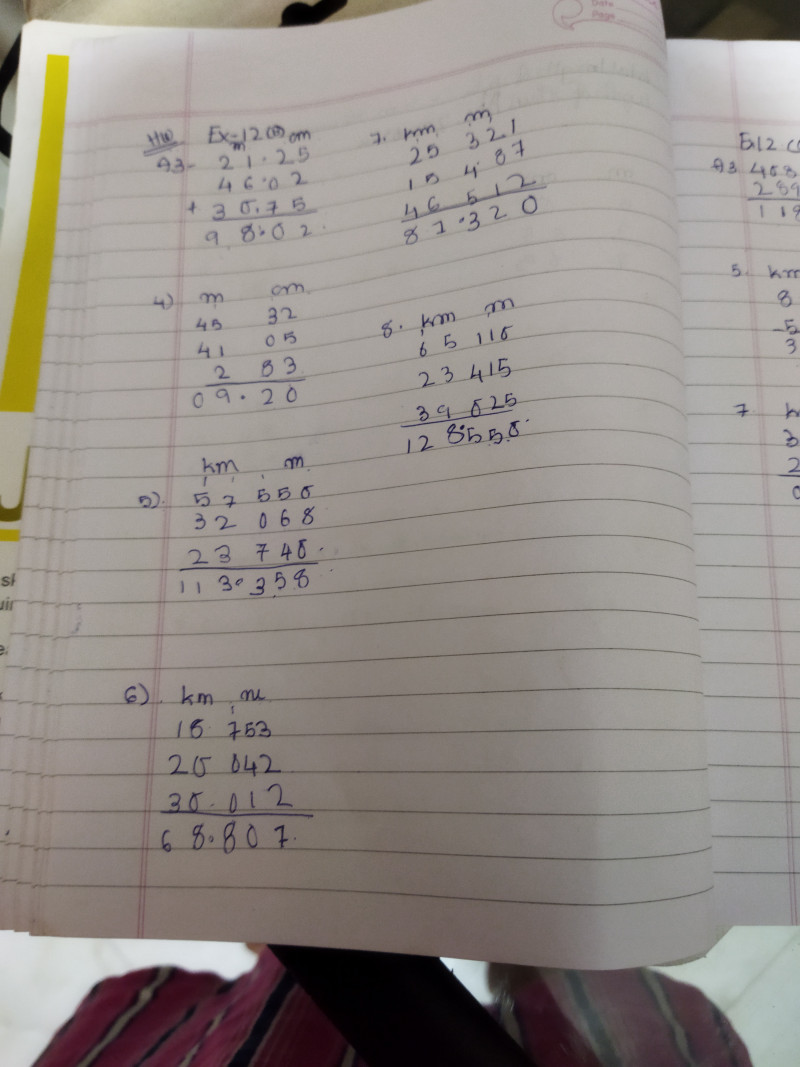 Date
Page
HW Ex-12(B)
Q3- m cm
21.25
46.02
+ 30.75
98.02.
4) m cm
45 32
41 05
2 83
09.20
5). km m
57 550
32 068
23 740.
113.358
6). km m
18 753
20 042
30.012
68.807.
7. km m
25 321
15 487
46 512
87.320
8. km m
65 110
23 415
39 025
128.550.
Ex12
Q3
5. km
8
-5
3
7
3
2